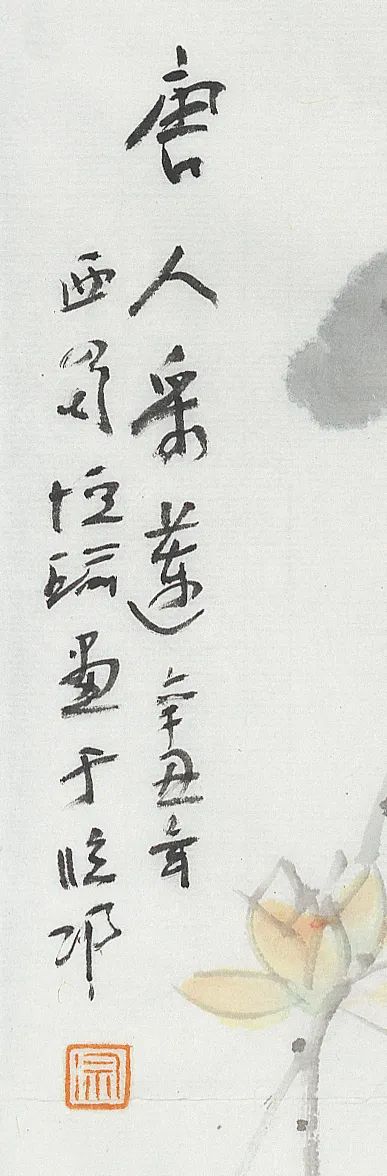 唐人采莲 辛丑年
西蜀恒画于临邛